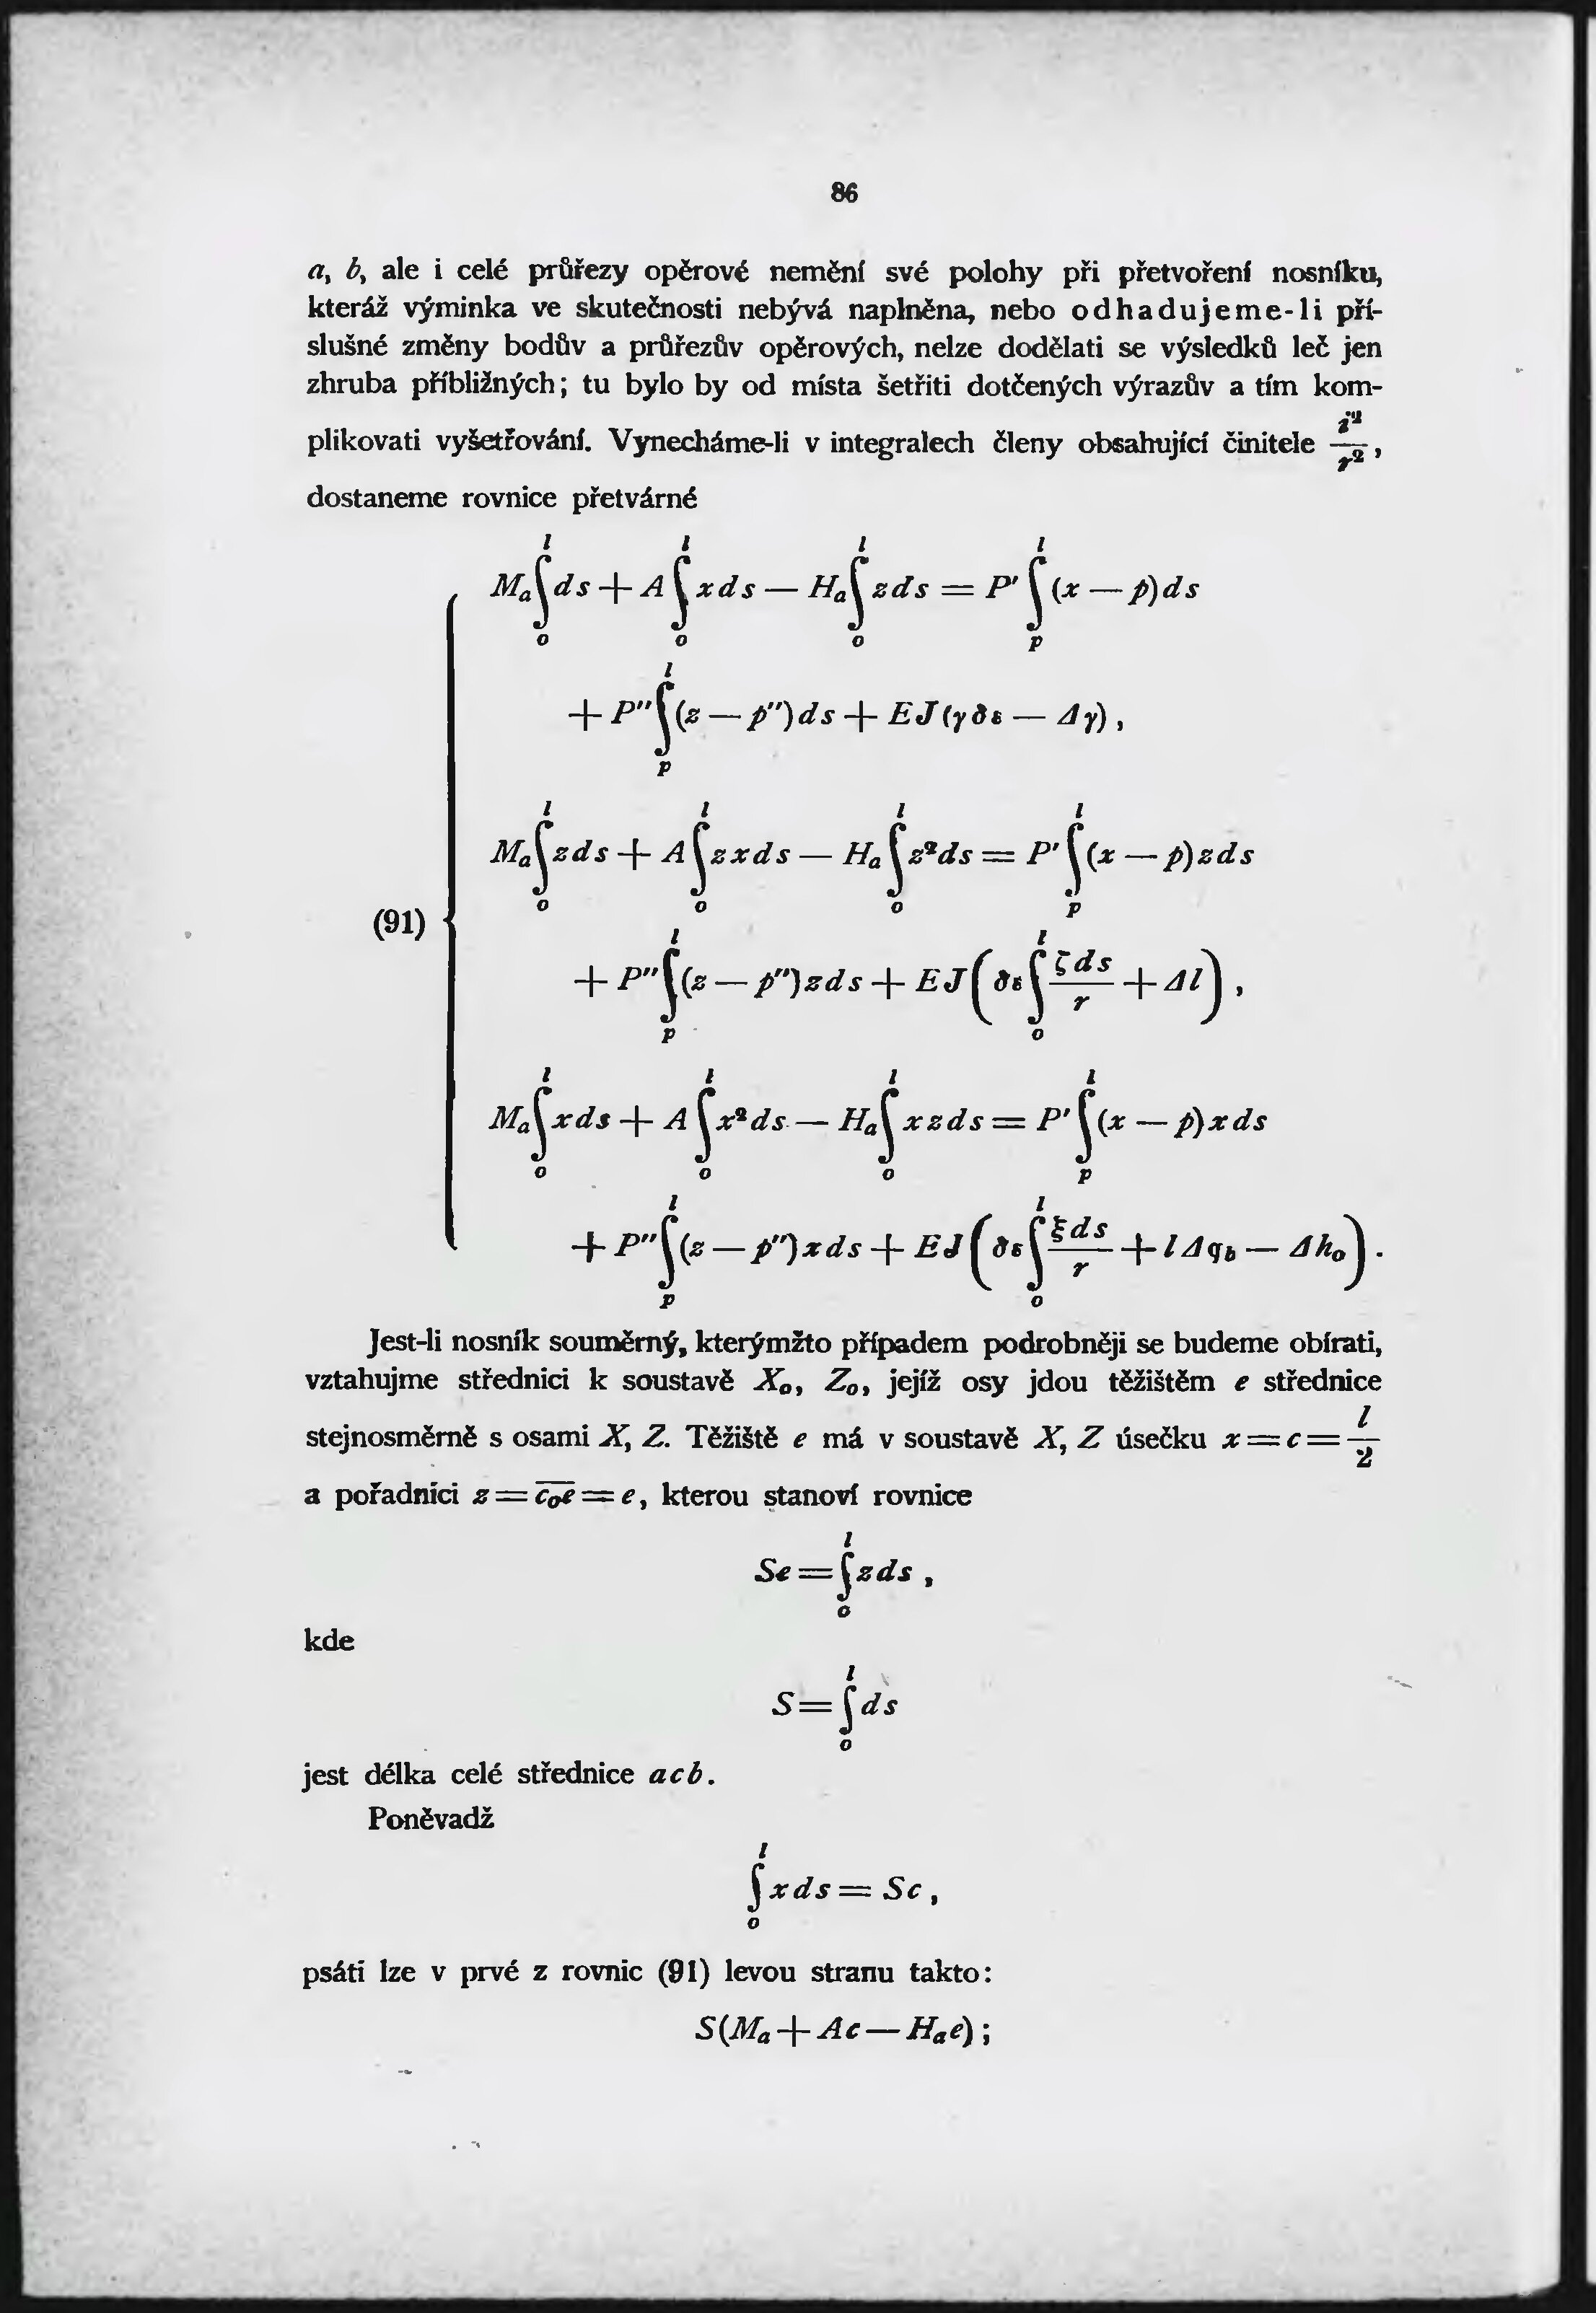 86
a, b, ale i celé průřezy opěrové nemění své polohy při přetvoření nosníku,
kteráž výminka ve skutečnosti nebývá naplněna, nebo odhadujeme-li pří-
slušné změny bodův a průřezův opěrových, nelze dodělati se výsledků leč jen
zhruba příbližných; tu bylo by od místa šetřiti dotčených výrazův a tím kom-
plikovati vyšetřování. Vynecháme-li v integralech členy obsahující činitele $\frac{i^2}{r^2}$,
dostaneme rovnice přetvárné
$M_a \int_o^l ds + A \int_o^l x ds — H_a \int_o^l z ds = P' \int_p^l (x — p) ds$
$+ P'' \int_p^l (z — p'') ds + EJ(\gamma \delta \varepsilon — \Delta \gamma),$
$M_a \int_o^l z ds + A \int_o^l z x ds — H_a \int_o^l z^2 ds = P' \int_p^l (x — p) z ds$
(91)
$+ P'' \int_p^l (z — p'') z ds + EJ \left( \delta \varepsilon \int_o^l \frac{\zeta ds}{r} + \Delta l \right),$
$M_a \int_o^l x ds + A \int_o^l x^2 ds — H_a \int_o^l x z ds = P' \int_p^l (x — p) x ds$
$+ P'' \int_p^l (z — p'') x ds + EJ \left( \delta \varepsilon \int_o^l \frac{\xi ds}{r} + l \Delta \varphi_b — \Delta h_o \right).$
Jest-li nosník souměrný, kterýmžto případem podrobněji se budeme obírati,
vztahujme střednici k soustavě $X_o$, $Z_o$, jejíž osy jdou těžištěm e střednice
stejnosměrně s osami X, Z. Těžiště e má v soustavě X, Z úsečku $x = c = \frac{l}{2}$
a pořadnici $z = \overline{c_o e} = e$, kterou stanoví rovnice
$Se = \int_o^l z ds,$
kde
$S = \int_o^l ds$
jest délka celé střednice acb.
Poněvadž
$\int_o^l x ds = Sc,$
psáti lze v prvé z rovnic (91) levou stranu takto:
$S(M_a + Ac — H_a e);$